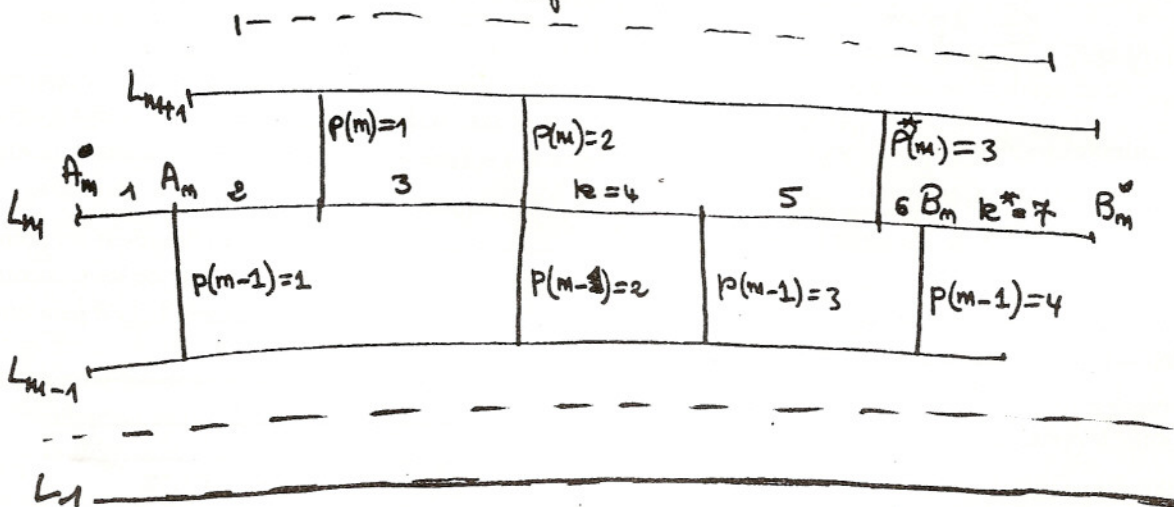 Lm+1
p(m)=1 p(m)=2 p*(m)=3
A•m 1 Am 2 3 k=4 5 6 Bm k*=7 B•m
Lm
p(m-1)=1 p(m-1)=2 p(m-1)=3 p(m-1)=4
Lm-1
L1